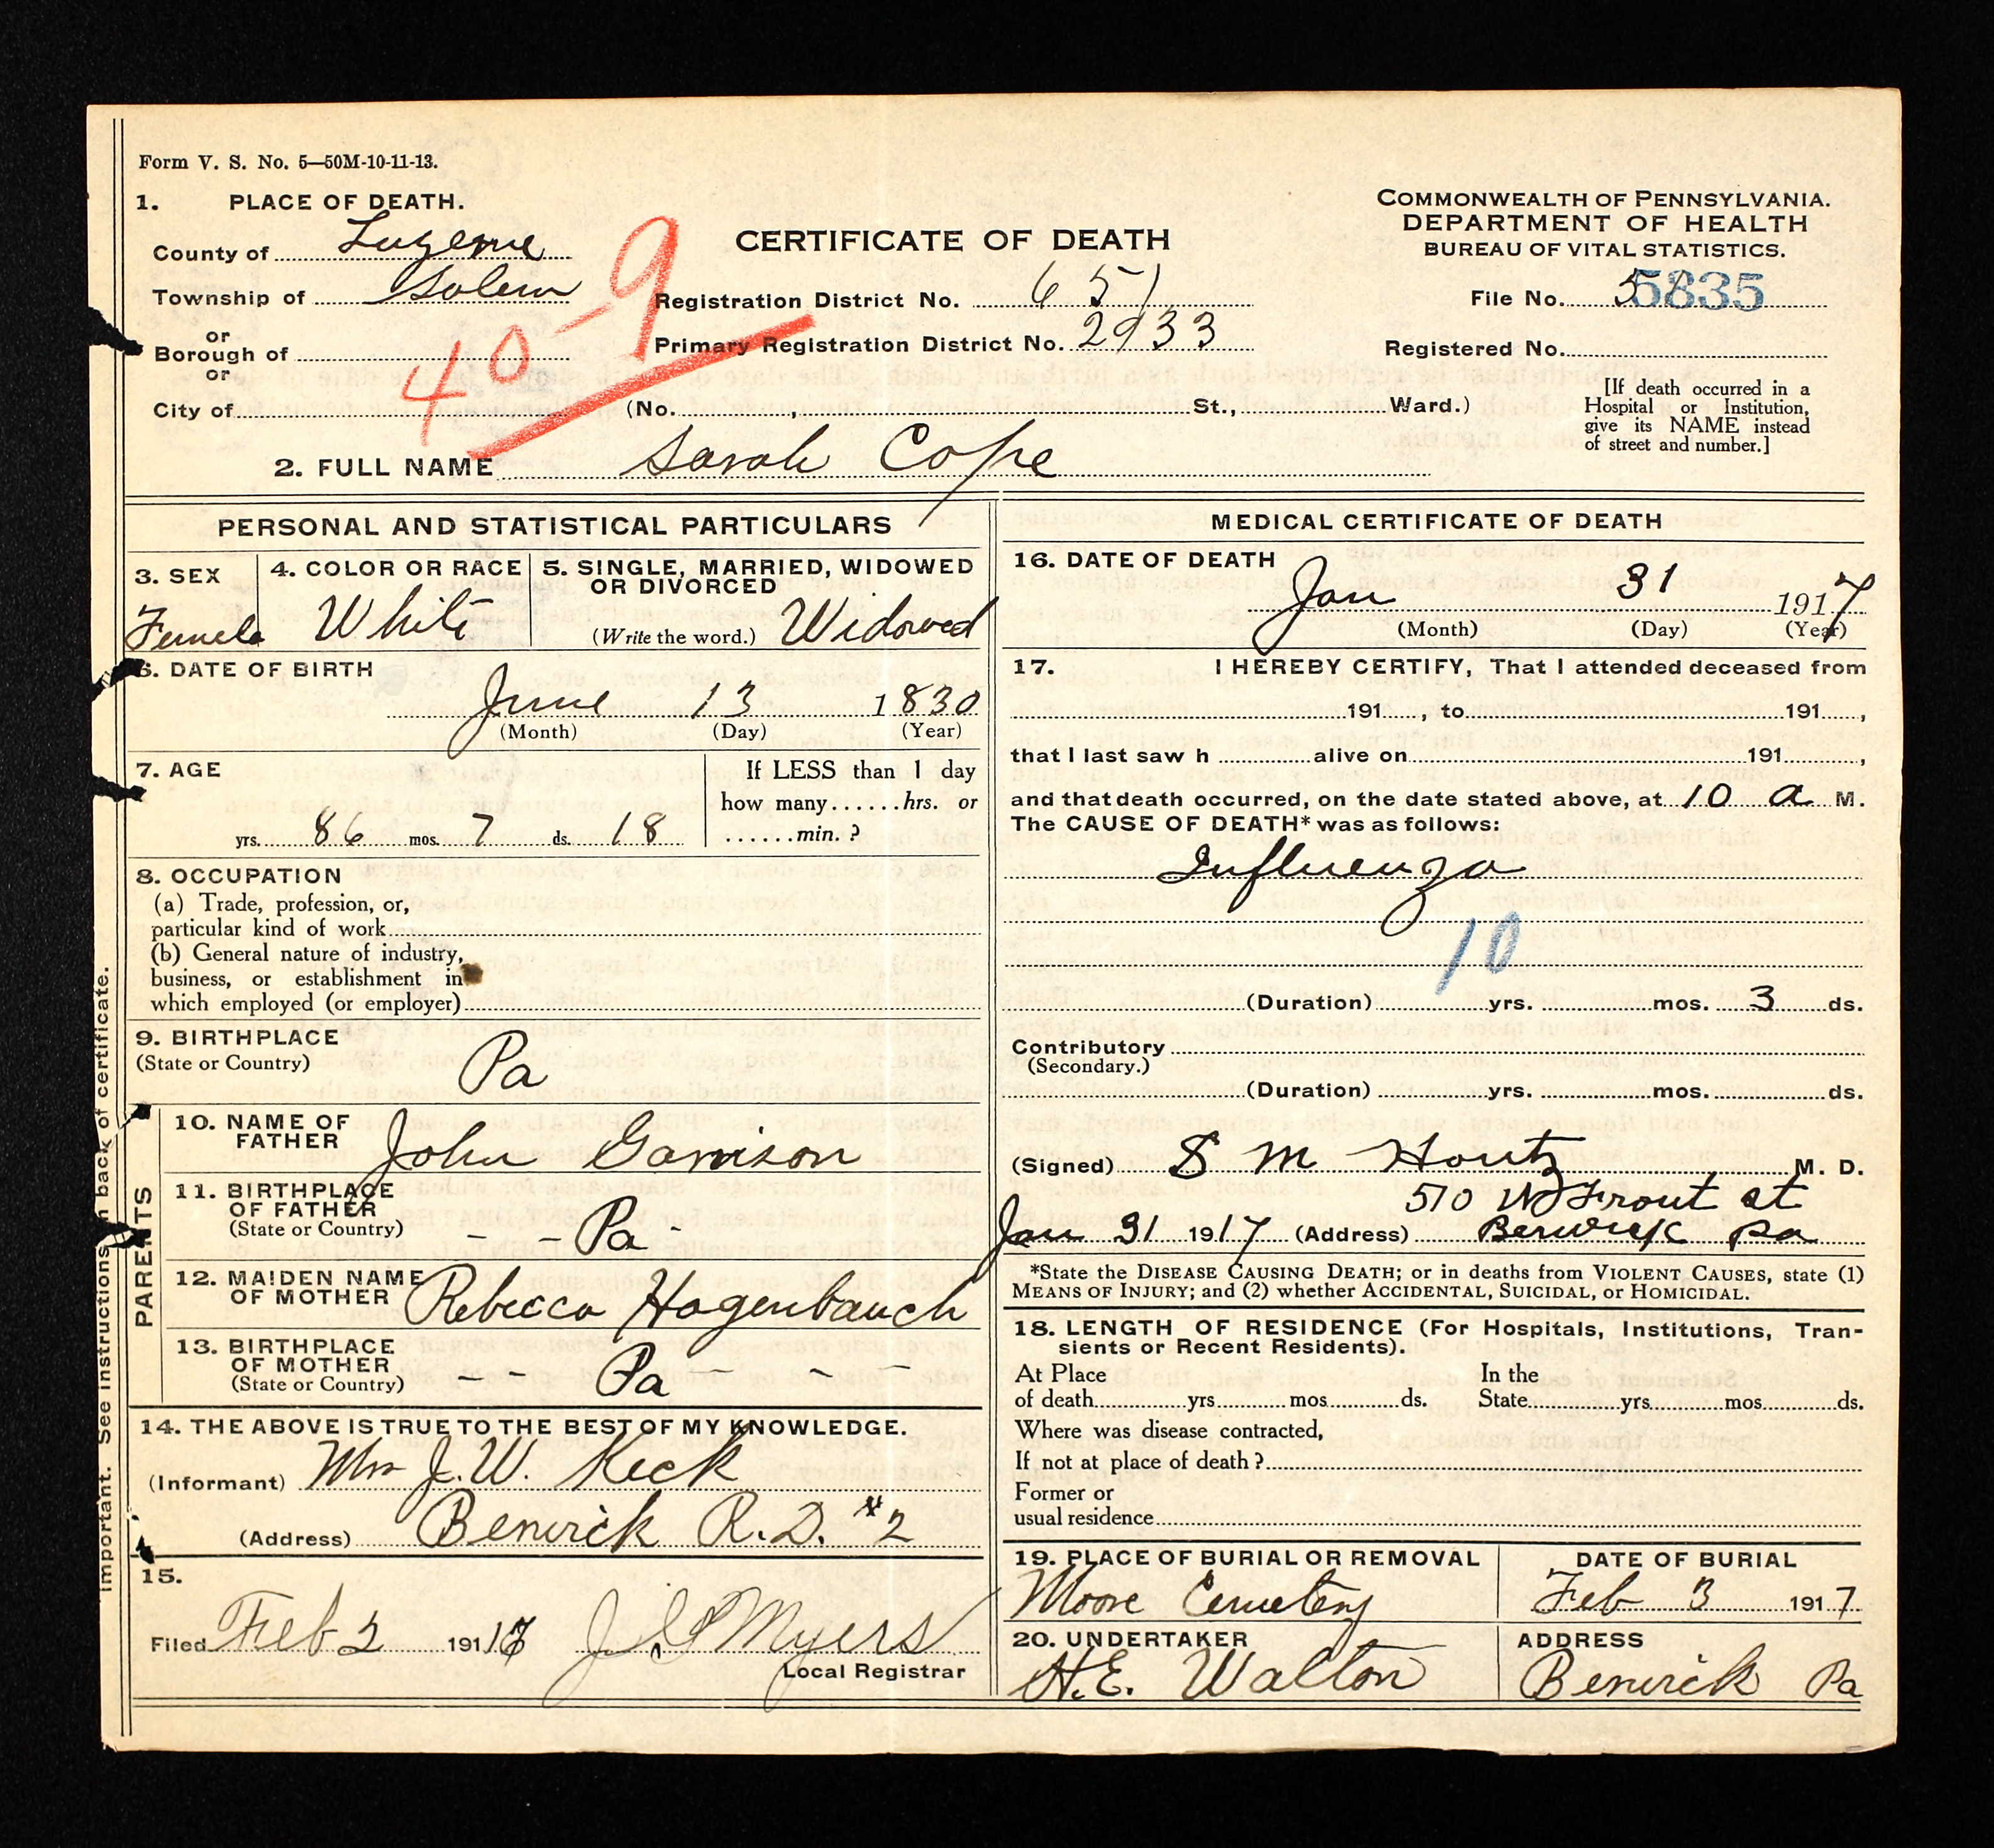 Form V. S. No. 5—50M-10-11-13.
1. PLACE OF DEATH.
County of Luzerne
Township of Salem
or
Borough of
or
City of
40-9
CERTIFICATE OF DEATH
Registration District No. 651
Primary Registration District No. 2933
(No. , St., Ward.)
COMMONWEALTH OF PENNSYLVANIA.
DEPARTMENT OF HEALTH
BUREAU OF VITAL STATISTICS.
File No. 5835
Registered No.
[If death occurred in a
Hospital or Institution,
give its NAME instead
of street and number.]
2. FULL NAME Sarah Cope
PERSONAL AND STATISTICAL PARTICULARS
3. SEX
Female
4. COLOR OR RACE
White
5. SINGLE, MARRIED, WIDOWED
OR DIVORCED
(Write the word.) Widowed
6. DATE OF BIRTH
June 13 1830
(Month) (Day) (Year)
7. AGE
yrs. 86 mos. 7 ds. 18
If LESS than 1 day
how many......hrs. or
......min. ?
8. OCCUPATION
(a) Trade, profession, or,
particular kind of work
(b) General nature of industry,
business, or establishment in
which employed (or employer)
9. BIRTHPLACE
(State or Country)
Pa
PARENTS
10. NAME OF
FATHER
John Garrison
11. BIRTHPLACE
OF FATHER
(State or Country)
- - Pa -
12. MAIDEN NAME
OF MOTHER
Rebecca Hagenbauch
13. BIRTHPLACE
OF MOTHER
(State or Country)
- - Pa - - -
14. THE ABOVE IS TRUE TO THE BEST OF MY KNOWLEDGE.
(Informant) Mrs J. W. Keck
(Address) Berwick R. D. #2
15.
Filed Feb 2 191
Myers
Local Registrar
important. See instructions on back of certificate.
MEDICAL CERTIFICATE OF DEATH
16. DATE OF DEATH
Jan 31 1917
(Month) (Day) (Year)
17. I HEREBY CERTIFY, That I attended deceased from
191 , to 191 ,
that I last saw h alive on 191 ,
and that death occurred, on the date stated above, at 10 a M.
The CAUSE OF DEATH* was as follows:
Influenza
10
(Duration) yrs. mos. 3 ds.
Contributory
(Secondary.)
(Duration) yrs. mos. ds.
(Signed) S M Houtz M. D.
510 W Front st
Jan 31 1917 (Address) Berwick Pa
*State the DISEASE CAUSING DEATH; or in deaths from VIOLENT CAUSES, state (1)
MEANS OF INJURY; and (2) whether ACCIDENTAL, SUICIDAL, or HOMICIDAL.
18. LENGTH OF RESIDENCE (For Hospitals, Institutions, Tran-
sients or Recent Residents).
At Place In the
of death yrs mos ds. State yrs mos ds.
Where was disease contracted,
If not at place of death ?
Former or
usual residence
19. PLACE OF BURIAL OR REMOVAL
Moore Cemetery
DATE OF BURIAL
Feb 3 1917
20. UNDERTAKER
H. E. Walton
ADDRESS
Berwick Pa